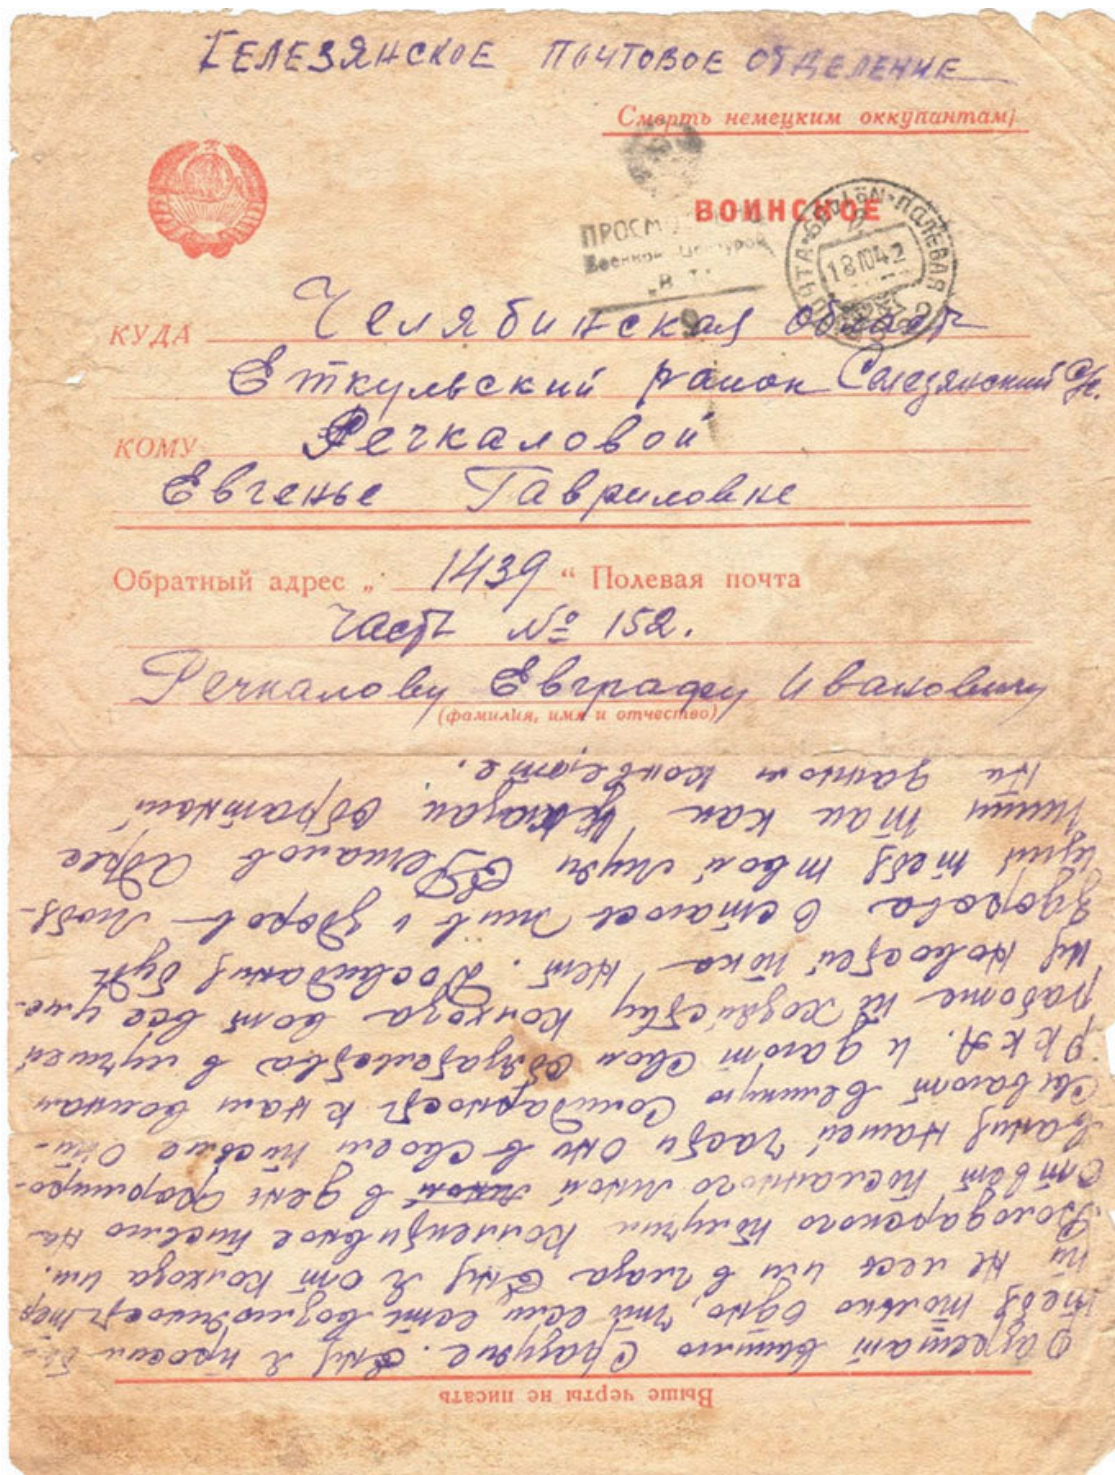 СЕЛЕЗЯНСКОЕ ПОЧТОВОЕ ОТДЕЛЕНИЕ
Смерть немецким оккупантам!
ВОИНСКОЕ
ПОЛЕВАЯ
18 10 42
КУДА Челябинская область
Еткульский район Селезянский с/с.
КОМУ Речкаловой
Евгенье Гавриловне
Обратный адрес „ 1439 “ Полевая почта
часть № 152.
Речкалову Евграфу Ивановичу
(фамилия, имя и отчество)
Выше черты не писать
вышлю Сразуже. Ену я просил бы
тебя только одно, есть возможность
не лезь им в глаза Ену я от Колхоза им.
Володарского получил Коллективное письмо на
ответ посланного мной в день Формиро-
вания нашей части они в своем письме опи-
сывают великую Солидарность к нам воинам
Р.К.К.А. и дают свои обязательства в лучшей
работе по хозяйству Колхоза вот все уме-
ня новостей пока нет. Досвидания будь
здорова Остаюсь жив и здоров Любя-
щий тебя твой муж Речкалов Адрес
пиши так как указан Обратный
на данном конверте.